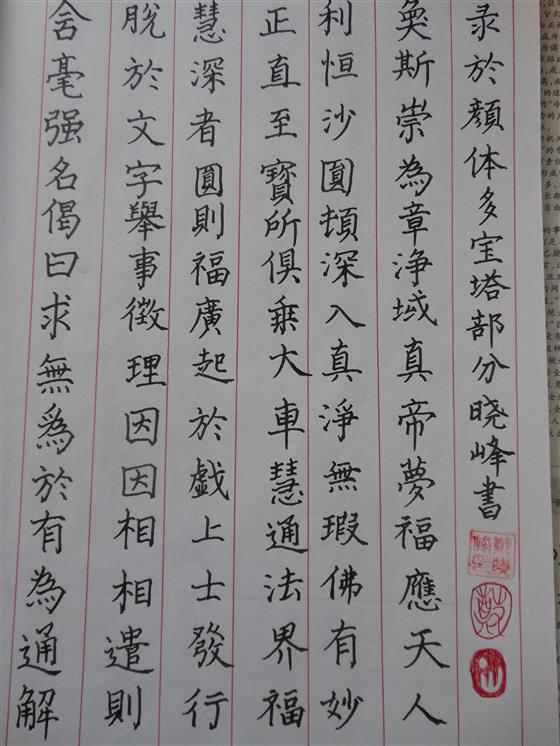 含毫强名偈曰求無爲於有為通解
脫於文字舉事徵理因因相相遣則
慧深者圓則福廣起於戲上士發行
正直至寶所俱乗大車慧通法界福
利恒沙圓頓深入真淨無瑕佛有妙
奐斯崇為章浄域真帝夢福應天人
录於顏体多宝塔部分晓峰書